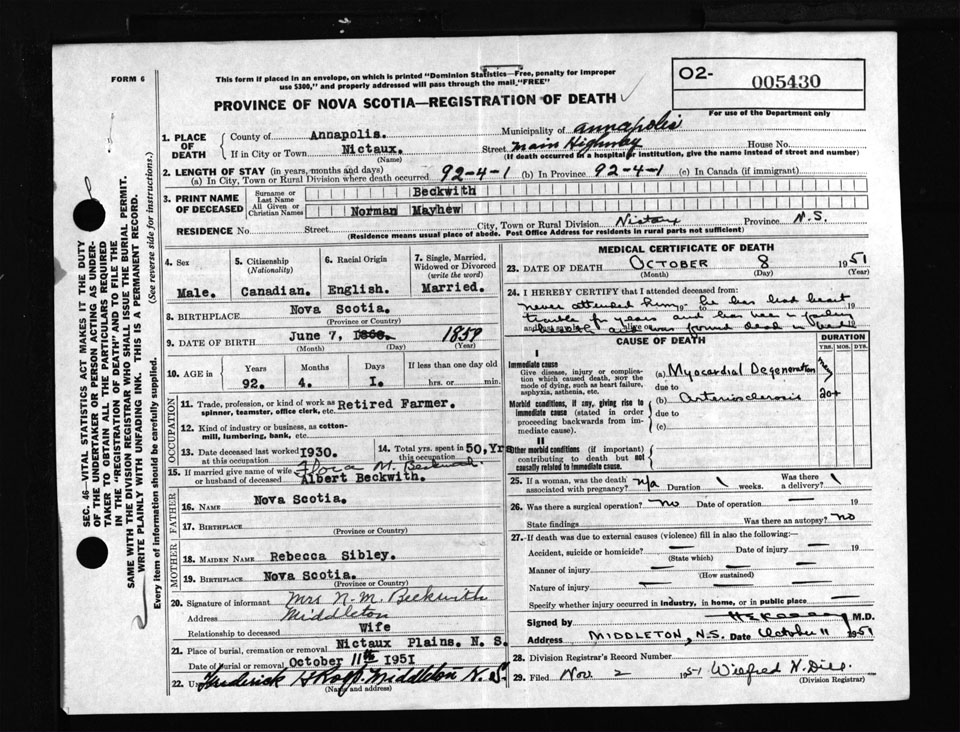 FORM 6
This form if placed in an envelope, on which is printed "Dominion Statistics—Free, penalty for improper
use $300," and properly addressed will pass through the mail "FREE"
O2-
005430
For use of the Department only
PROVINCE OF NOVA SCOTIA—REGISTRATION OF DEATH ✓
SEC. 46—VITAL STATISTICS ACT MAKES IT THE DUTY
OF THE UNDERTAKER OR PERSON ACTING AS UNDER-
TAKER TO OBTAIN ALL THE PARTICULARS REQUIRED
IN THE "REGISTRATION OF DEATH" AND TO FILE THE
SAME WITH THE DIVISION REGISTRAR WHO SHALL ISSUE THE BURIAL PERMIT.
WRITE PLAINLY WITH UNFADING INK. THIS IS A PERMANENT RECORD.
Every item of information should be carefully supplied. (See reverse side for instructions.)
1. PLACE OF DEATH
County of Annapolis. Municipality of Annapolis
If in City or Town Nictaux. Street Main Highway House No.
(Name) (If death occurred in a hospital or institution, give the name instead of street and number)
2. LENGTH OF STAY (in years, months and days)
(a) In City, Town or Rural Division where death occurred 92-4-1 (b) In Province 92-4-1 (c) In Canada (if immigrant)
3. PRINT NAME OF DECEASED
Surname or Last Name Beckwith
All Given or Christian Names Norman Mayhew
RESIDENCE No. Street City, Town or Rural Division Nictaux Province N.S.
(Residence means usual place of abode. Post Office Address for residents in rural parts not sufficient)
4. Sex Male.
5. Citizenship (Nationality) Canadian.
6. Racial Origin English.
7. Single, Married, Widowed or Divorced (write the word) Married.
8. BIRTHPLACE Nova Scotia.
(Province or Country)
9. DATE OF BIRTH June 7, 1859
(Month) (Day) (Year)
10. AGE in Years Months Days If less than one day old
92. 4. I. hrs. or min.
OCCUPATION
11. Trade, profession, or kind of work as spinner, teamster, office clerk, etc. Retired Farmer.
12. Kind of industry or business, as cotton-mill, lumbering, bank, etc.
13. Date deceased last worked at this occupation I930.
14. Total yrs. spent in this occupation 50, Yrs
15. If married give name of wife or husband of deceased Flora M. Beckwith.
FATHER
Albert Beckwith.
16. NAME Nova Scotia.
17. BIRTHPLACE
(Province or Country)
MOTHER
18. MAIDEN NAME Rebecca Sibley.
19. BIRTHPLACE Nova Scotia.
(Province or Country)
20. Signature of informant Mrs N. M. Beckwith
Address Middleton
Relationship to deceased Wife
21. Place of burial, cremation or removal Nictaux Plains, N. S.
Date of burial or removal October 11th I95I
22. Frederick Middleton N. S.
(Name and address)
MEDICAL CERTIFICATE OF DEATH
23. DATE OF DEATH OCTOBER 8 1951
(Month) (Day) (Year)
24. I HEREBY CERTIFY that I attended deceased from:
never attended him, he has had heart
trouble for years and has been in failing
found dead in bed
CAUSE OF DEATH
DURATION
YRS. MOS. DYS.
I
Immediate cause
Give disease, injury or complication which caused death, not the mode of dying, such as heart failure, asphyxia, asthenia, etc.
(a) Myocardial Degeneration
due to
Morbid conditions, if any, giving rise to immediate cause (stated in order proceeding backwards from immediate cause).
(b) Arteriosclerosis 20+
due to
(c)
II
Other morbid conditions (if important) contributing to death but not causally related to immediate cause.
25. If a woman, was the death associated with pregnancy? n/a Duration weeks. Was there a delivery?
26. Was there a surgical operation? no Date of operation 19
State findings Was there an autopsy? no
27.-If death was due to external causes (violence) fill in also the following:-
Accident, suicide or homicide? Date of injury 19
(State which)
Manner of injury
(How sustained)
Nature of injury
Specify whether injury occurred in industry, in home, or in public place
Signed by M.D.
Address MIDDLETON, N.S. Date October 11 1951
28. Division Registrar's Record Number
29. Filed Nov. 2 1951 Wilfred
(Division Registrar)